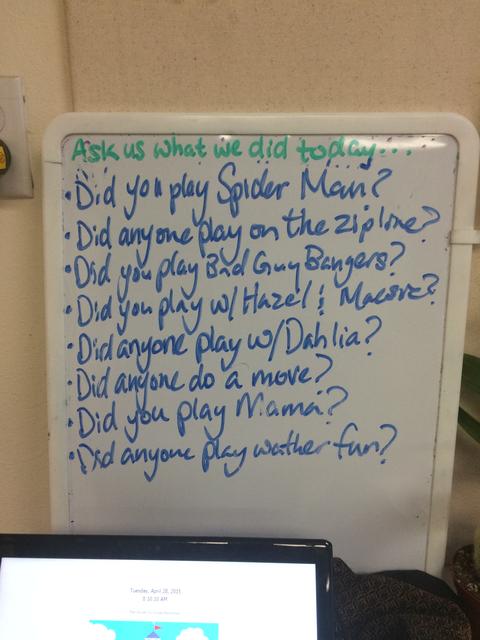 Ask us what we did today...
• Did you play Spider Man?
• Did anyone play on the zipline?
• Did you play Bad Guy Bangers?
• Did you play w/ Hazel & Maeve?
• Did anyone play w/ Dahlia?
• Did anyone do a move?
• Did you play Mama?
• Did anyone play wather fun?
Tuesday, April 28, 2015
8:10:10 AM